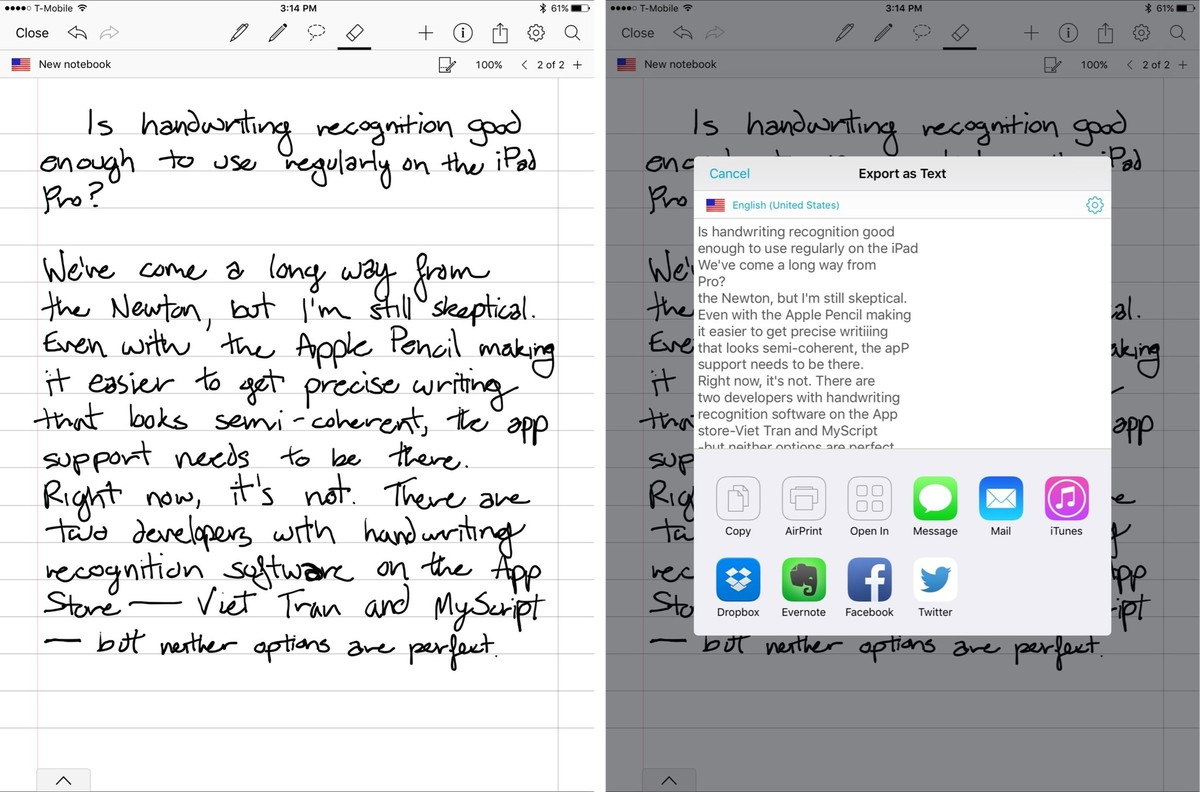 T-Mobile 3:14 PM 61%
Close
New notebook 100% < 2 of 2 +
Is handwriting recognition good
enough to use regularly on the iPad
Pro?
We've come a long way from
the Newton, but I'm still skeptical.
Even with the Apple Pencil making
it easier to get precise writing
that looks semi-coherent, the app
support needs to be there.
Right now, it's not. There are
two developers with handwriting
recognition software on the App
Store — Viet Tran and MyScript
— but neither options are perfect.
T-Mobile 3:14 PM 61%
Close
New notebook 100% < 2 of 2 +
Is handwriting recognition good
Cancel Export as Text
English (United States)
Is handwriting recognition good
enough to use regularly on the iPad
We've come a long way from
Pro?
the Newton, but I'm still skeptical.
Even with the Apple Pencil making
it easier to get precise writiiing
that looks semi-coherent, the apP
support needs to be there.
Right now, it's not. There are
two developers with handwriting
recognition software on the App
store-Viet Tran and MyScript
-but neither options are perfect
Copy AirPrint Open In Message Mail iTunes
Dropbox Evernote Facebook Twitter
— but neither options are perfect.